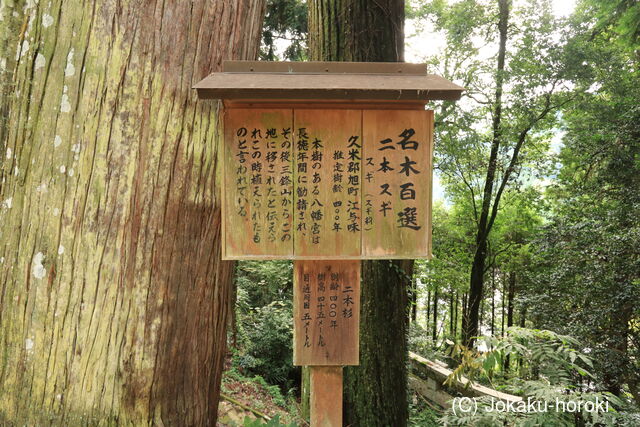 名木百選
二本スギ
スギ（スギ科）
久米郡旭町江与味
推定樹齢　四〇〇年
本樹のある八幡宮は
長徳年間に勧請され、
その後三鋒山からこの
地に移されたと伝えら
れこの時植えられたも
のと言われている。
二本杉
樹齢 四〇〇年
樹高 四十五メートル
目通周囲 五メートル
(C) Jokaku-horoki